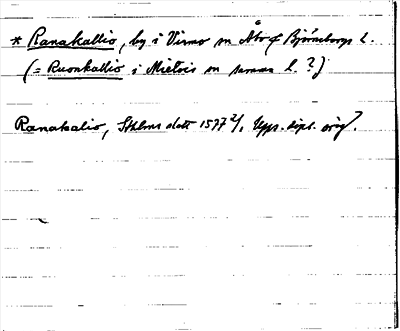 * Ranakallio, by i Virmo sn Åbo & Björneborgs l.
(= Ruonkallio i Mietois sn samma l. ?)
Ranakalio, Sthlms slott 1577 2/1 Upps. dipl. orig.